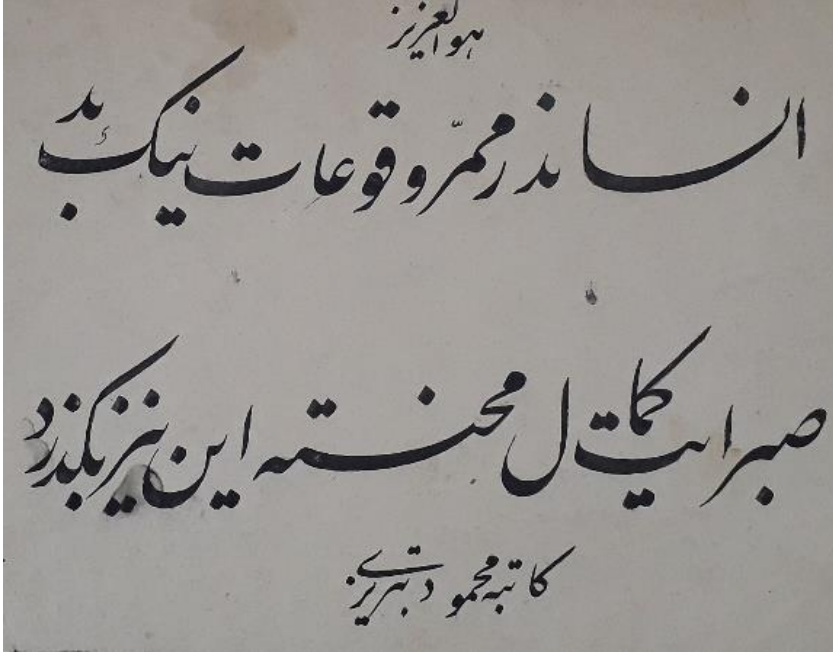 هو العزیز
انساندر ممرّ وقوعات نیک بد
صبر ایت کمال محنته این نیز بگذرد
کاتبه محمود تبریزی